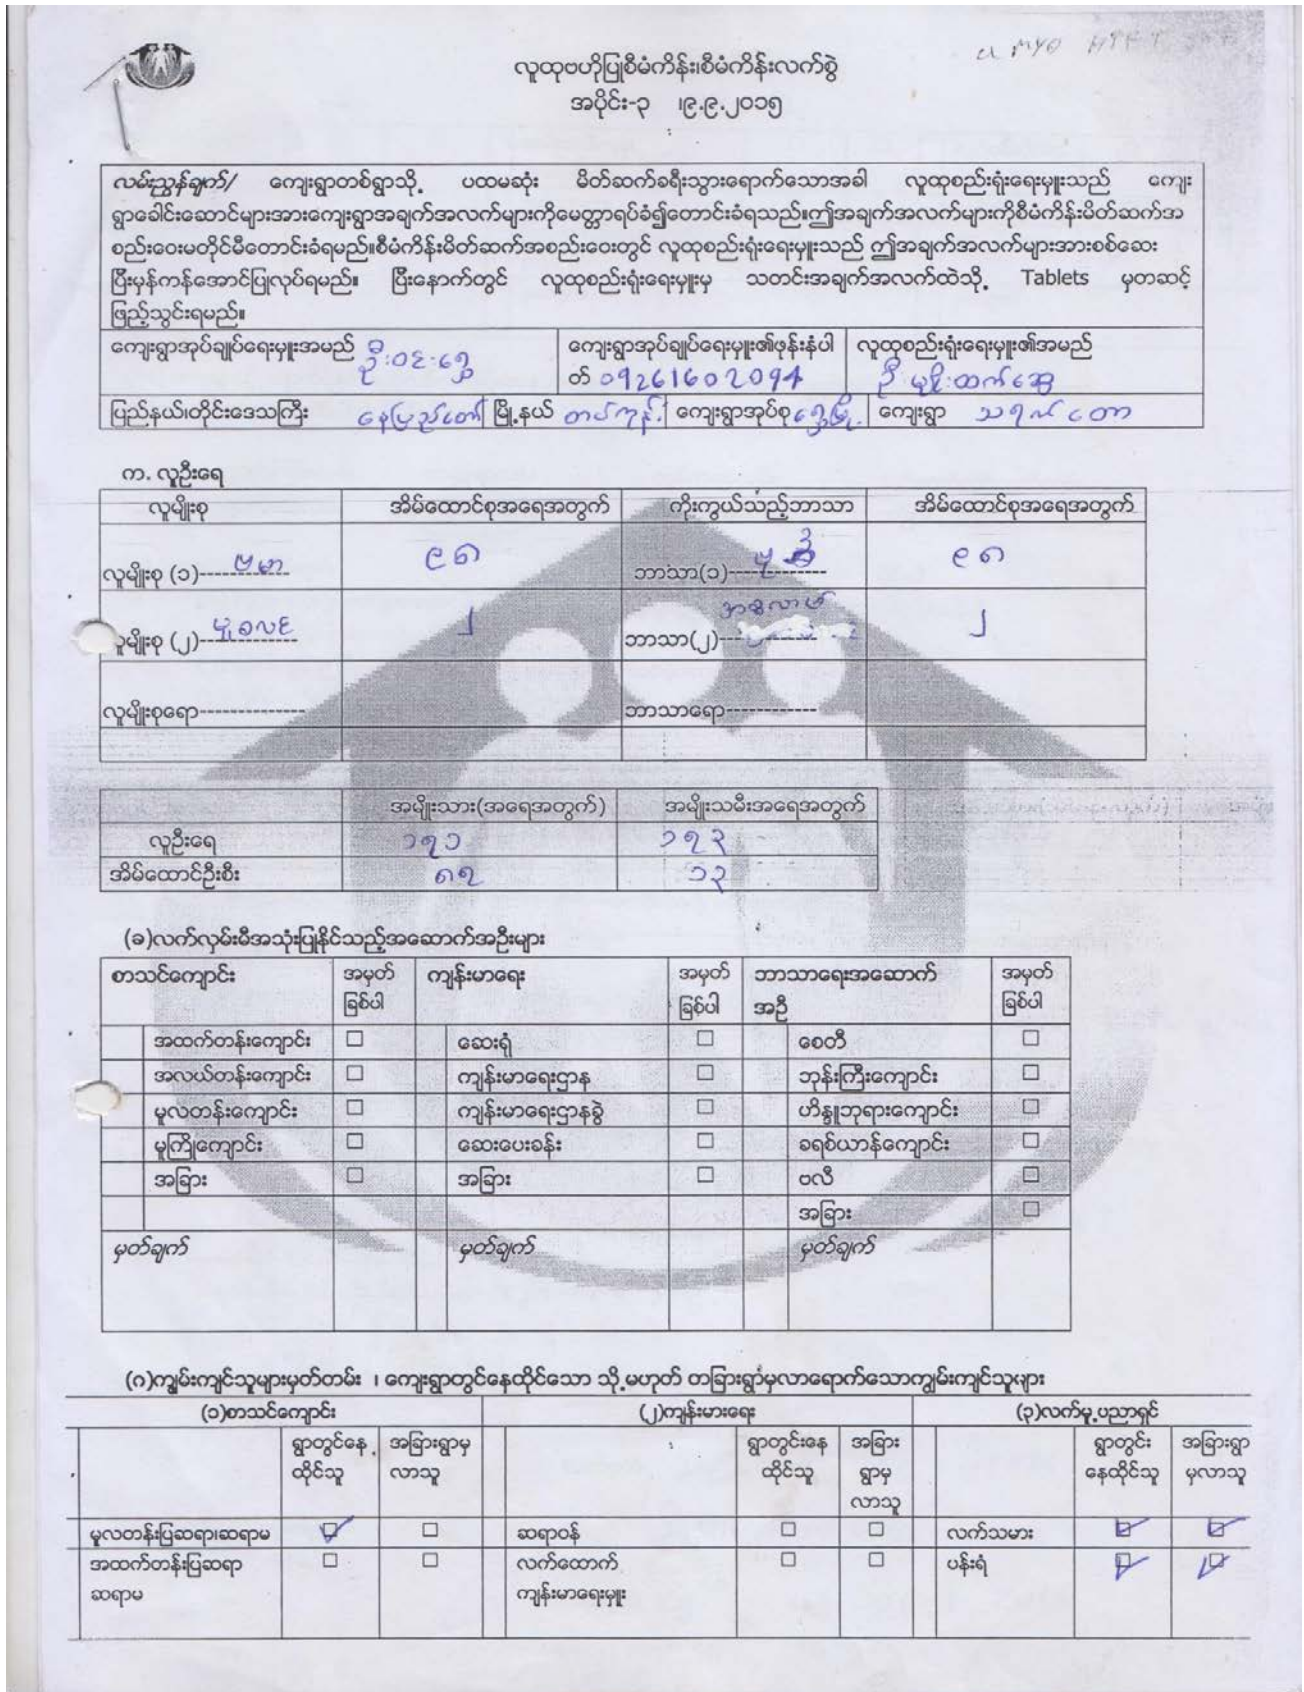 U MYO HTET
လူထုဗဟိုပြုစီမံကိန်း၊စီမံကိန်းလက်စွဲ
အပိုင်း-၃ ၊၉.၉.၂၀၁၅
လမ်းညွှန်ချက်/ ကျေးရွာတစ်ရွာသို့ ပထမဆုံး မိတ်ဆက်ခရီးသွားရောက်သောအခါ လူထုစည်းရုံးရေးမှူးသည် ကျေး
ရွာခေါင်းဆောင်များအားကျေးရွာအချက်အလက်များကိုမေတ္တာရပ်ခံ၍တောင်းခံရသည်။ဤအချက်အလက်များကိုစီမံကိန်းမိတ်ဆက်အ
စည်းဝေးမတိုင်မီတောင်းခံရမည်။စီမံကိန်းမိတ်ဆက်အစည်းဝေးတွင် လူထုစည်းရုံးရေးမှူးသည် ဤအချက်အလက်များအားစစ်ဆေး
ပြီးမှန်ကန်အောင်ပြုလုပ်ရမည်။ ပြီးနောက်တွင် လူထုစည်းရုံးရေးမှူးမှ သတင်းအချက်အလက်ထဲသို့ Tablets မှတဆင့်
ဖြည့်သွင်းရမည်။
ကျေးရွာအုပ်ချုပ်ရေးမှူးအမည် ဦးဝင်းရွှေ ကျေးရွာအုပ်ချုပ်ရေးမှူး၏ဖုန်းနံပါ လူထုစည်းရုံးရေးမှူး၏အမည်
တ် 09261602094 ဦးမျိုးထက်ဆွေ
ပြည်နယ်၊တိုင်းဒေသကြီး နေပြည်တော် မြို့နယ် တပ်ကုန်း ကျေးရွာအုပ်စု ရွှေမြို့ ကျေးရွာ သရက်တော
က. လူဦးရေ
လူမျိုးစု အိမ်ထောင်စုအရေအတွက် ကိုးကွယ်သည့်ဘာသာ အိမ်ထောင်စုအရေအတွက်
လူမျိုးစု (၁)---ဗမာ--- ၉၈ ဘာသာ(၁)---ဗုဒ္ဓ--- ၉၈
လူမျိုးစု (၂)---မူစလင်--- ၂ ဘာသာ(၂)---အစ္စလာမ်--- ၂
လူမျိုးစုရော------------- ဘာသာရော------------
အမျိုးသား(အရေအတွက်) အမျိုးသမီးအရေအတွက်
လူဦးရေ ၁၇၁ ၁၇၃
အိမ်ထောင်ဦးစီး ၈၇ ၁၃
(ခ)လက်လှမ်းမီအသုံးပြုနိုင်သည့်အဆောက်အဦးများ
စာသင်ကျောင်း အမှတ် ကျန်းမာရေး အမှတ် ဘာသာရေးအဆောက် အမှတ်
ခြစ်ပါ ခြစ်ပါ အဦ ခြစ်ပါ
အထက်တန်းကျောင်း ☐ ဆေးရုံ ☐ စေတီ ☐
အလယ်တန်းကျောင်း ☐ ကျန်းမာရေးဌာန ☐ ဘုန်းကြီးကျောင်း ☐
မူလတန်းကျောင်း ☐ ကျန်းမာရေးဌာနခွဲ ☐ ဟိန္ဒူဘုရားကျောင်း ☐
မူကြိုကျောင်း ☐ ဆေးပေးခန်း ☐ ခရစ်ယာန်ကျောင်း ☐
အခြား ☐ အခြား ☐ ဗလီ ☐
အခြား ☐
မှတ်ချက် မှတ်ချက် မှတ်ချက်
(ဂ)ကျွမ်းကျင်သူများမှတ်တမ်း ၊ ကျေးရွာတွင်နေထိုင်သော သို့မဟုတ် တခြားရွာမှလာရောက်သောကျွမ်းကျင်သူများ
(၁)စာသင်ကျောင်း (၂)ကျန်းမားရေး (၃)လက်မှု့ပညာရှင်
ရွာတွင်နေ အခြားရွာမှ ရွာတွင်းနေ အခြား ရွာတွင်း အခြားရွာ
ထိုင်သူ လာသူ ထိုင်သူ ရွာမှ နေထိုင်သူ မှလာသူ
လာသူ
မူလတန်းပြဆရာ၊ဆရာမ ☑ ☐ ဆရာဝန် ☐ ☐ လက်သမား ☑ ☑
အထက်တန်းပြဆရာ ☐ ☐ လက်ထောက် ☐ ☐ ပန်းရံ ☑ ☑
ဆရာမ ကျန်းမာရေးမှူး